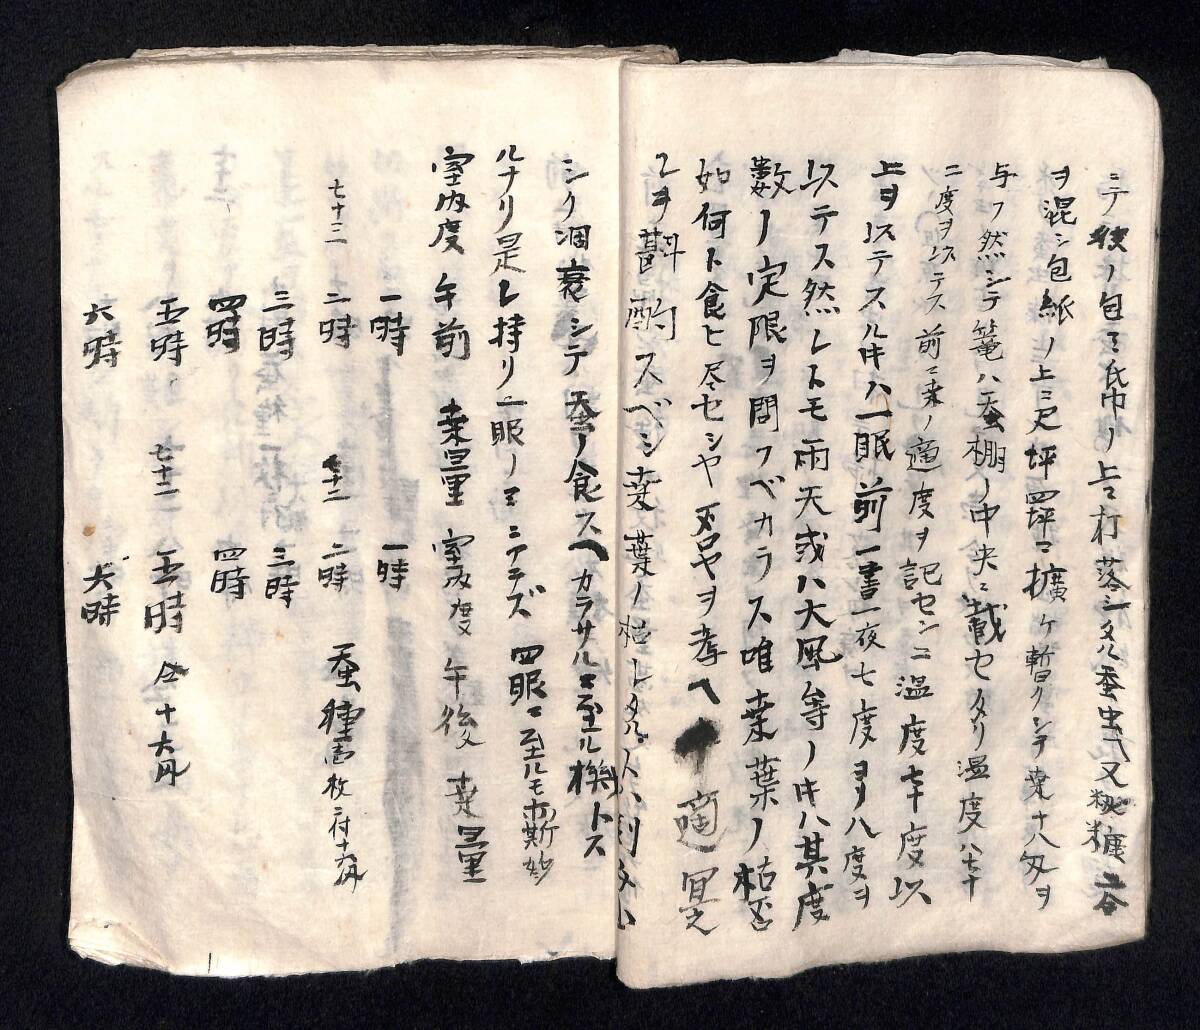 ニテ彼ノ包ミ紙巾ノ上ニ打落シタル蚕虫ヘ又秕糠二合
ヲ混シ包紙ノ上ニ尺坪四坪ニ擴ケ暫クシテ桒十八匁ヲ
与フ然シテ篭ハ蚕棚ノ中央ニ載セタリ温度ハ七十
二度ヲ以テス前ニ桒ノ適度ヲ記センニ温度七十度以
上ヲ以テスル㆔ハ一眠前一昼一夜七度ヨリ八度ヲ
以テス然レトモ雨天或ハ大風等ノ㆔ハ其度
数ノ定限ヲ問フベカラス唯桒葉ノ枯否
如何ト食ヒ尽セシヤ否ヤヲ考ヘ適宜之
レヲ斟酌スベシ桒葉ノ枯レタル
シク凋衰シテ蚕ノ食スヘカラサルニ至ル機トス
ルナリ是レ持リ一眠ノミニアラズ四眠ニ至ルモ亦斯
室内度 午前 桒量 室内度 午後 桒量
一時 一時
七十三 二時 七十二 二時 蚕種壱枚ニ付十六匁
三時 三時
四時 四時
五時 七十二 五時 仝十六匁
六時 六時